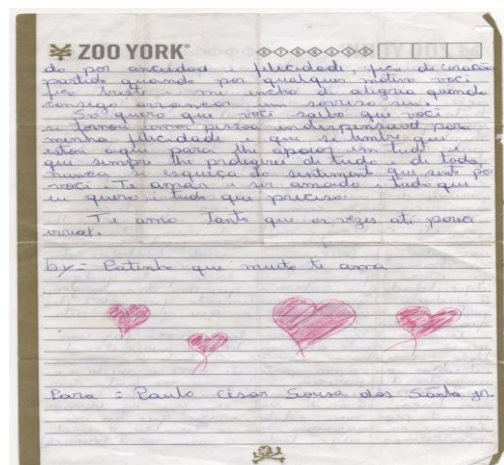 ZOO YORK
do por anciedad e felicidade, fico de coração
partido quando por qualquer motivo você
fica triste me encho de aligria quando
consigo arrancar um sorriso seu.
So quero que você saiba que você
se tornou uma pessoa indispensavel para
minha felicidade e que lembre que
estou aqui para lhe apoiar em tudo e
que sempre lhe protegerei de tudo e de todos,
nunca se esqueça do sentimento que sinto por
você. Te amar e ser amado e tudo que
eu quero e tudo que preciso.
Te amo Tanto que as vezes até parece
irreal.
by = Patinho que muito ti ama
Para = Paulo César Sousa dos Santo jr